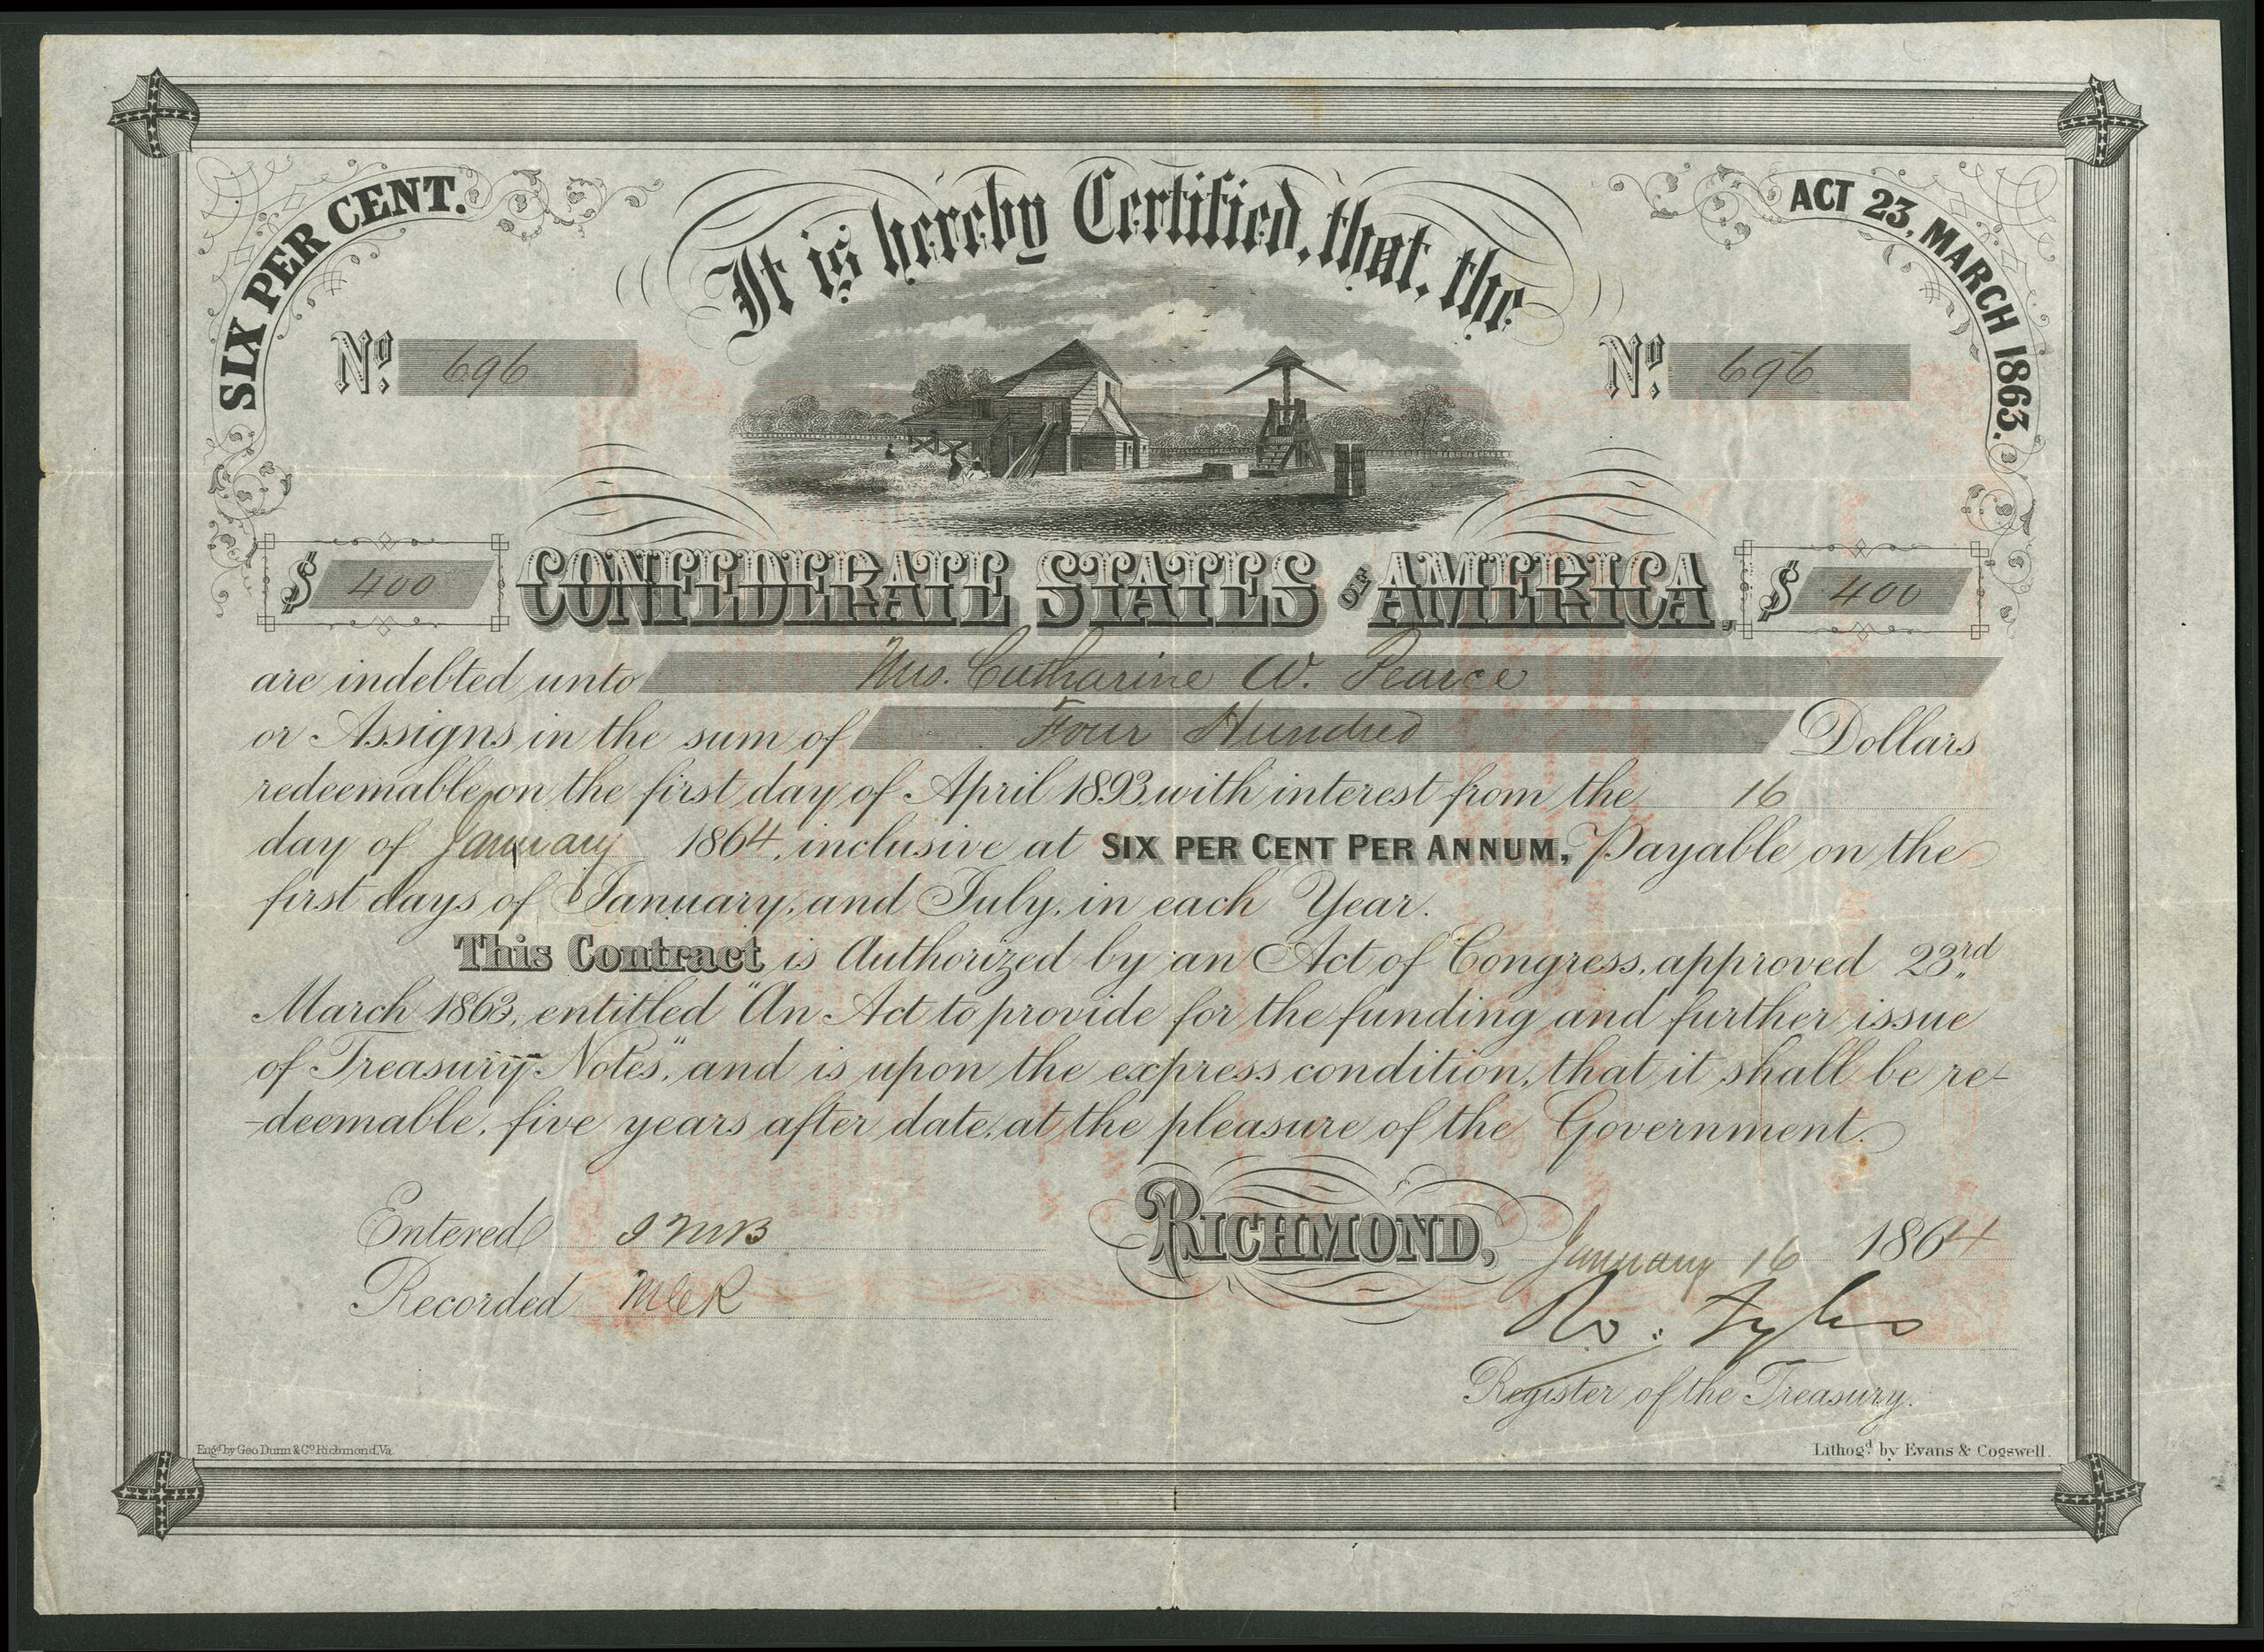 SIX PER CENT.
It is hereby Certified, that, the
ACT 23, MARCH 1863.
No. 696
No. 696
$ 400
CONFEDERATE STATES OF AMERICA,
$ 400
are indebted unto Mrs. Catharine W. Pearce
or Assigns in the sum of Four Hundred Dollars
redeemable on the first day of April 1893, with interest from the 16
day of January 1864, inclusive at SIX PER CENT PER ANNUM, Payable on the
first days of January, and July, in each Year.
This Contract is Authorized by an Act of Congress, approved 23rd
March 1863, entitled "An Act to provide for the funding and further issue
of Treasury Notes", and is upon the express condition, that it shall be re-
-deemable, five years after date, at the pleasure of the Government.
Entered
RICHMOND, January 16 1864
Recorded McR
Ro: Tyler
Register of the Treasury.
Engd. by Geo Dunn & Co. Richmond, Va.
Lithogd. by Evans & Cogswell.